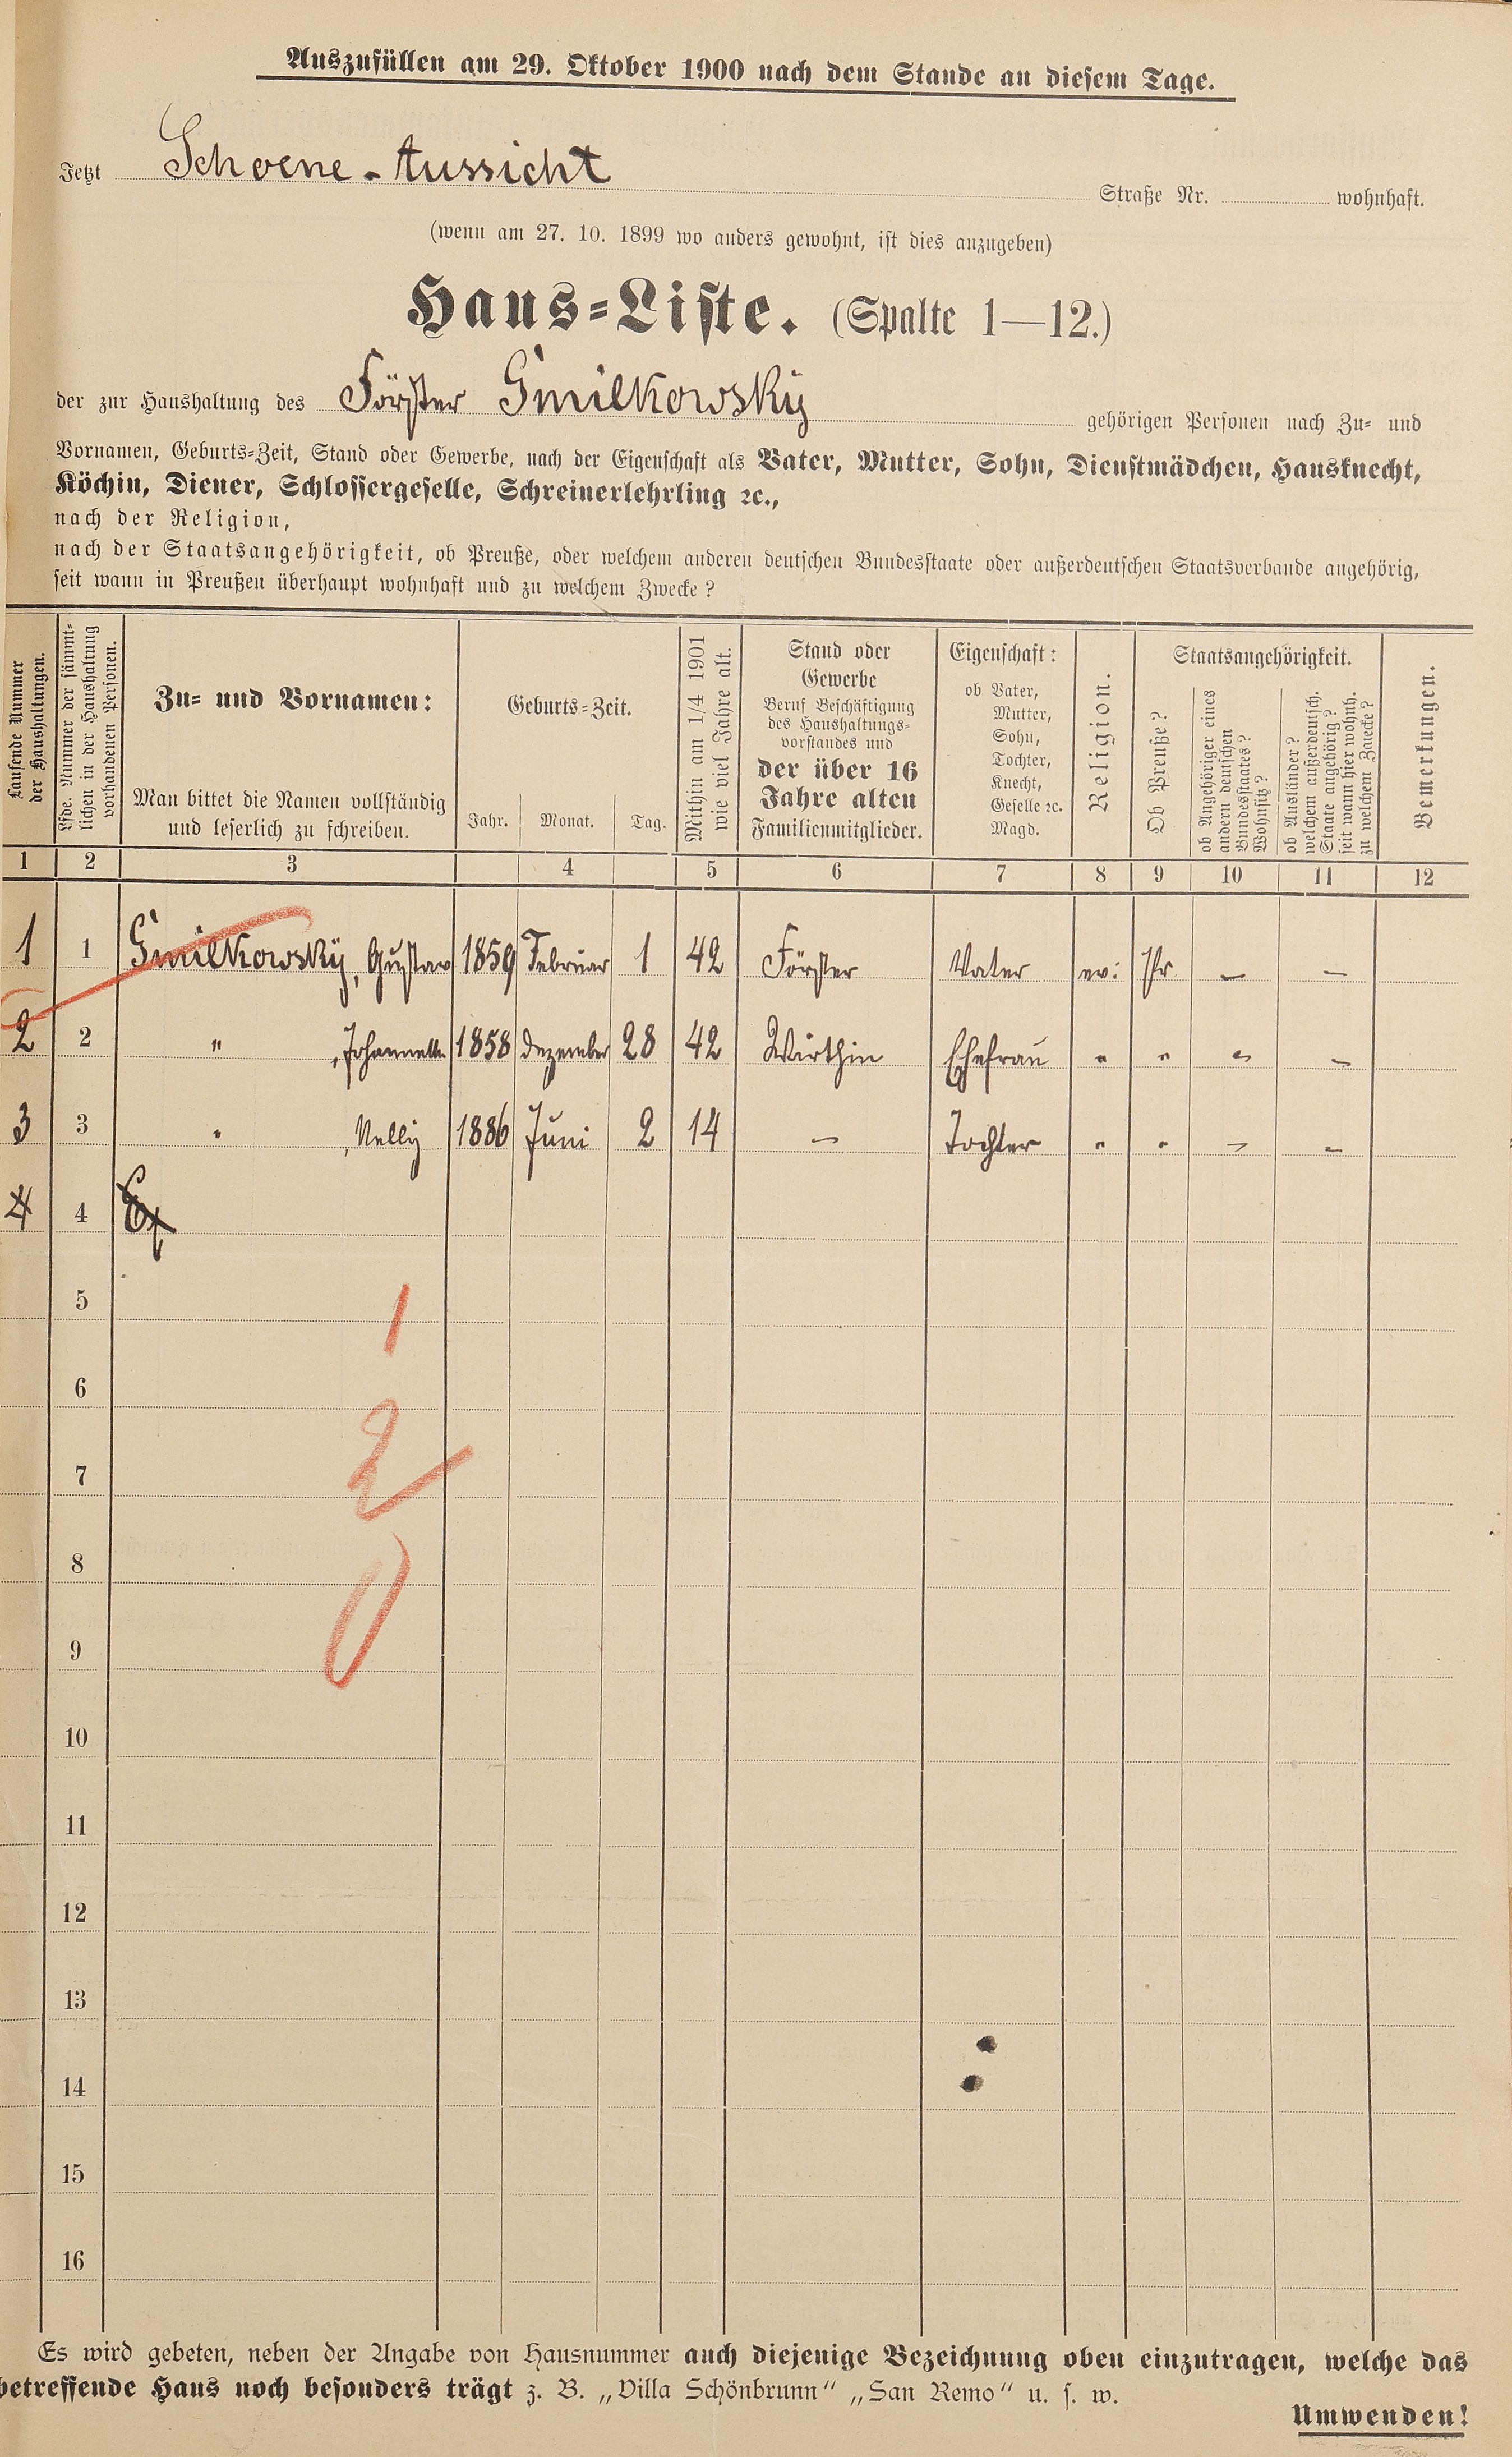 Auszufüllen am 29. Oktober 1900 nach dem Stande an diesem Tage.
Jetzt Schoene-Aussicht Straße Nr. wohnhaft.
(wenn am 27. 10. 1899 wo anders gewohnt, ist dies anzugeben)
Haus=Liste. (Spalte 1—12.)
der zur Haushaltung des Förster Gmilkowsky gehörigen Personen nach Zu= und
Vornamen, Geburts=Zeit, Stand oder Gewerbe, nach der Eigenschaft als Vater, Mutter, Sohn, Dienstmädchen, Hausknecht,
Köchin, Diener, Schlossergeselle, Schreinerlehrling ꝛc.,
nach der Religion,
nach der Staatsangehörigkeit, ob Preuße, oder welchem anderen deutschen Bundesstaate oder außerdeutschen Staatsverbande angehörig,
seit wann in Preußen überhaupt wohnhaft und zu welchem Zwecke?
Laufende Nummer
der Haushaltungen.
Lfde. Nummer der sämmt=
lichen in der Haushaltung
vorhandenen Personen.
Zu= und Vornamen:
Man bittet die Namen vollständig
und leserlich zu schreiben.
Geburts=Zeit.
Jahr. Monat. Tag.
Mithin am 1/4 1901
wie viel Jahre alt.
Stand oder
Gewerbe
Beruf Beschäftigung
des Haushaltungs=
vorstandes und
der über 16
Jahre alten
Familienmitglieder.
Eigenschaft:
ob Vater,
Mutter,
Sohn,
Tochter,
Knecht,
Geselle ꝛc.
Magd.
Religion.
Staatsangehörigkeit.
Ob Preuße?
ob Angehöriger eines
andern deutschen
Bundesstaates?
Wohnsitz?
ob Ausländer?
welchem außerdeutsch.
Staate angehörig?
seit wann hier wohnh.
zu welchem Zwecke?
Bemerkungen.
1 2 3 4 5 6 7 8 9 10 11 12
1 1 Gmilkowsky, Gustav 1859 Februar 1 42 Förster Vater ev: Pr — —
2 2 " , Johannette 1858 Dezember 28 42 Wirthin Ehefrau " " " —
3 3 " , Nelly 1886 Juni 2 14 — Tochter " " — —
4 4
5
1
6
2
7
8
0
9
10
11
12
13
14
15
16
Es wird gebeten, neben der Angabe von Hausnummer auch diejenige Bezeichnung oben einzutragen, welche das
betreffende Haus noch besonders trägt z. B. „Villa Schönbrunn“ „San Remo“ u. s. w.
Umwenden!